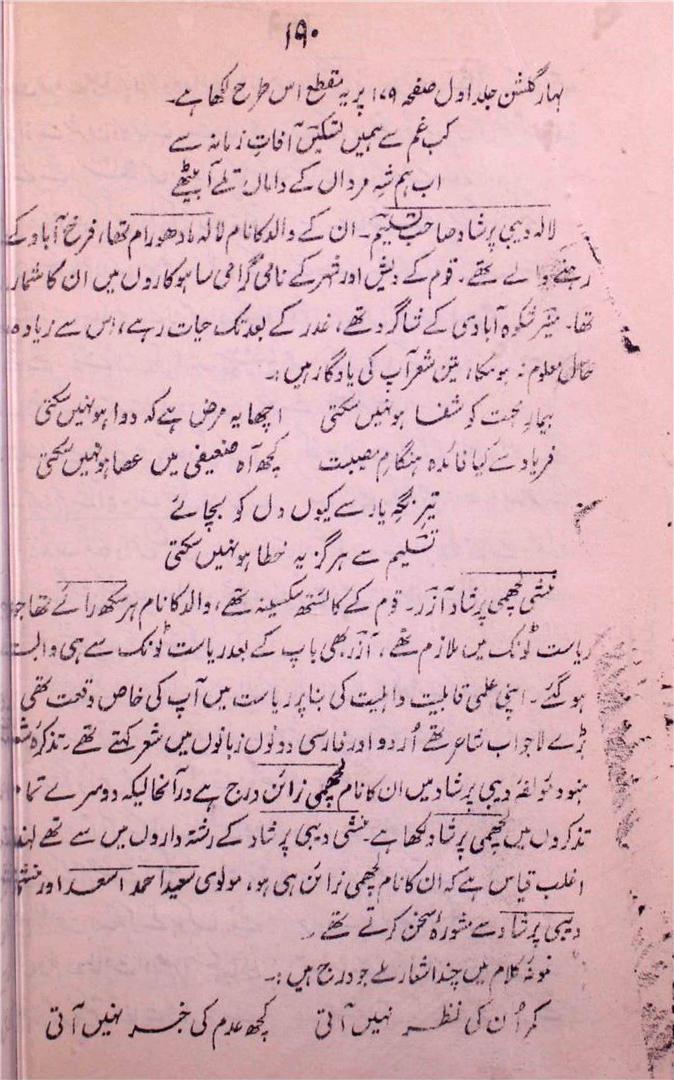 ۱۹۰
بہار گلشن جلد اول صفحہ ۱۷۹ پر یہ مقطع اس طرح لکھا ہے۔
کب غم سے ہمیں تسکیںؔ آفاتِ زمانہ سے
اب ہم شہِ مرداں کے داماں تلے آ بیٹھے
لالہ دیبی پرشاد صاحب تسلیمؔ۔ ان کے والد کا نام لالہ مادھو رام تھا، فرخ آباد کے
رہنے والے تھے۔ قوم کے ویش اور شہر کے نامی گرامی ساہوکاروں میں ان کا شمار
تھا۔ منیرؔ شکوہ آبادی کے شاگرد تھے، غدر کے بعد تک حیات رہے، اس سے زیادہ
حال معلوم نہ ہو سکا، تین شعر آپ کی یادگار ہیں:۔
بیمارِ محبت کو شفا ہو نہیں سکتی اچھا یہ مرض ہے کہ دوا ہو نہیں سکتی
فریاد سے کیا فائدہ ہنگامِ مصیبت کچھ آہ ضعیفی میں عصا ہو نہیں سکتی
تیرِ نگہِ یار سے کیوں دل کو بچائے
تسلیم سے ہرگز یہ خطا ہو نہیں سکتی
منشی لچھمی پرشاد آزرؔ۔ قوم کے کائستھ سکسینہ تھے، والد کا نام ہر سکھ رائے تھا جو
ریاست ٹونک میں ملازم تھے، آزرؔ بھی باپ کے بعد ریاست ٹونک سے ہی وابستہ
ہو گئے۔ اپنی علمی قابلیت و اہلیت کی بنا پر ریاست میں آپ کی خاص وقعت تھی
بڑے لاجواب شاعر تھے اُردو اور فارسی دونوں زبانوں میں شعر کہتے تھے۔ تذکرہ
ہنود مؤلفہ دیبی پرشاد میں ان کا نام لچھمی نرائن درج ہے درآنحالیکہ دوسرے تمام
تذکروں میں لچھمی پرشاد لکھا ہے۔ منشی دیبی پرشاد کے رشتہ داروں میں سے تھے لہٰذا
اغلب قیاس ہے کہ ان کا نام لچھمی نرائن ہی ہو، مولوی سعید احمد اسعدؔ اور منشی
دیبی پرشاد سے مشورۂ سخن کرتے تھے۔
نمونہ کلام میں چند اشعار ملے جو درج ہیں:۔
کمر اُن کی نظر نہیں آتی کچھ عدم کی خبر نہیں آتی